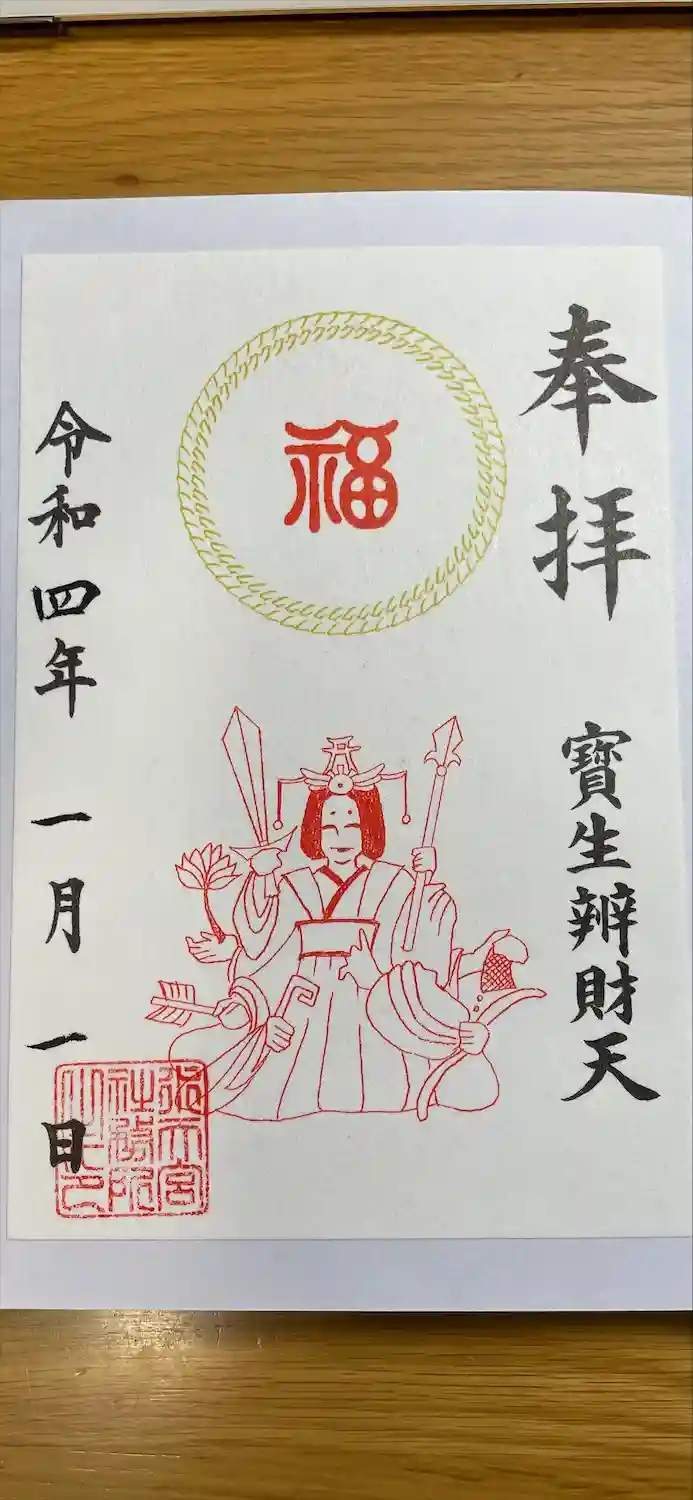 奉拝
寶生辨財天
福
令和四年一月一日